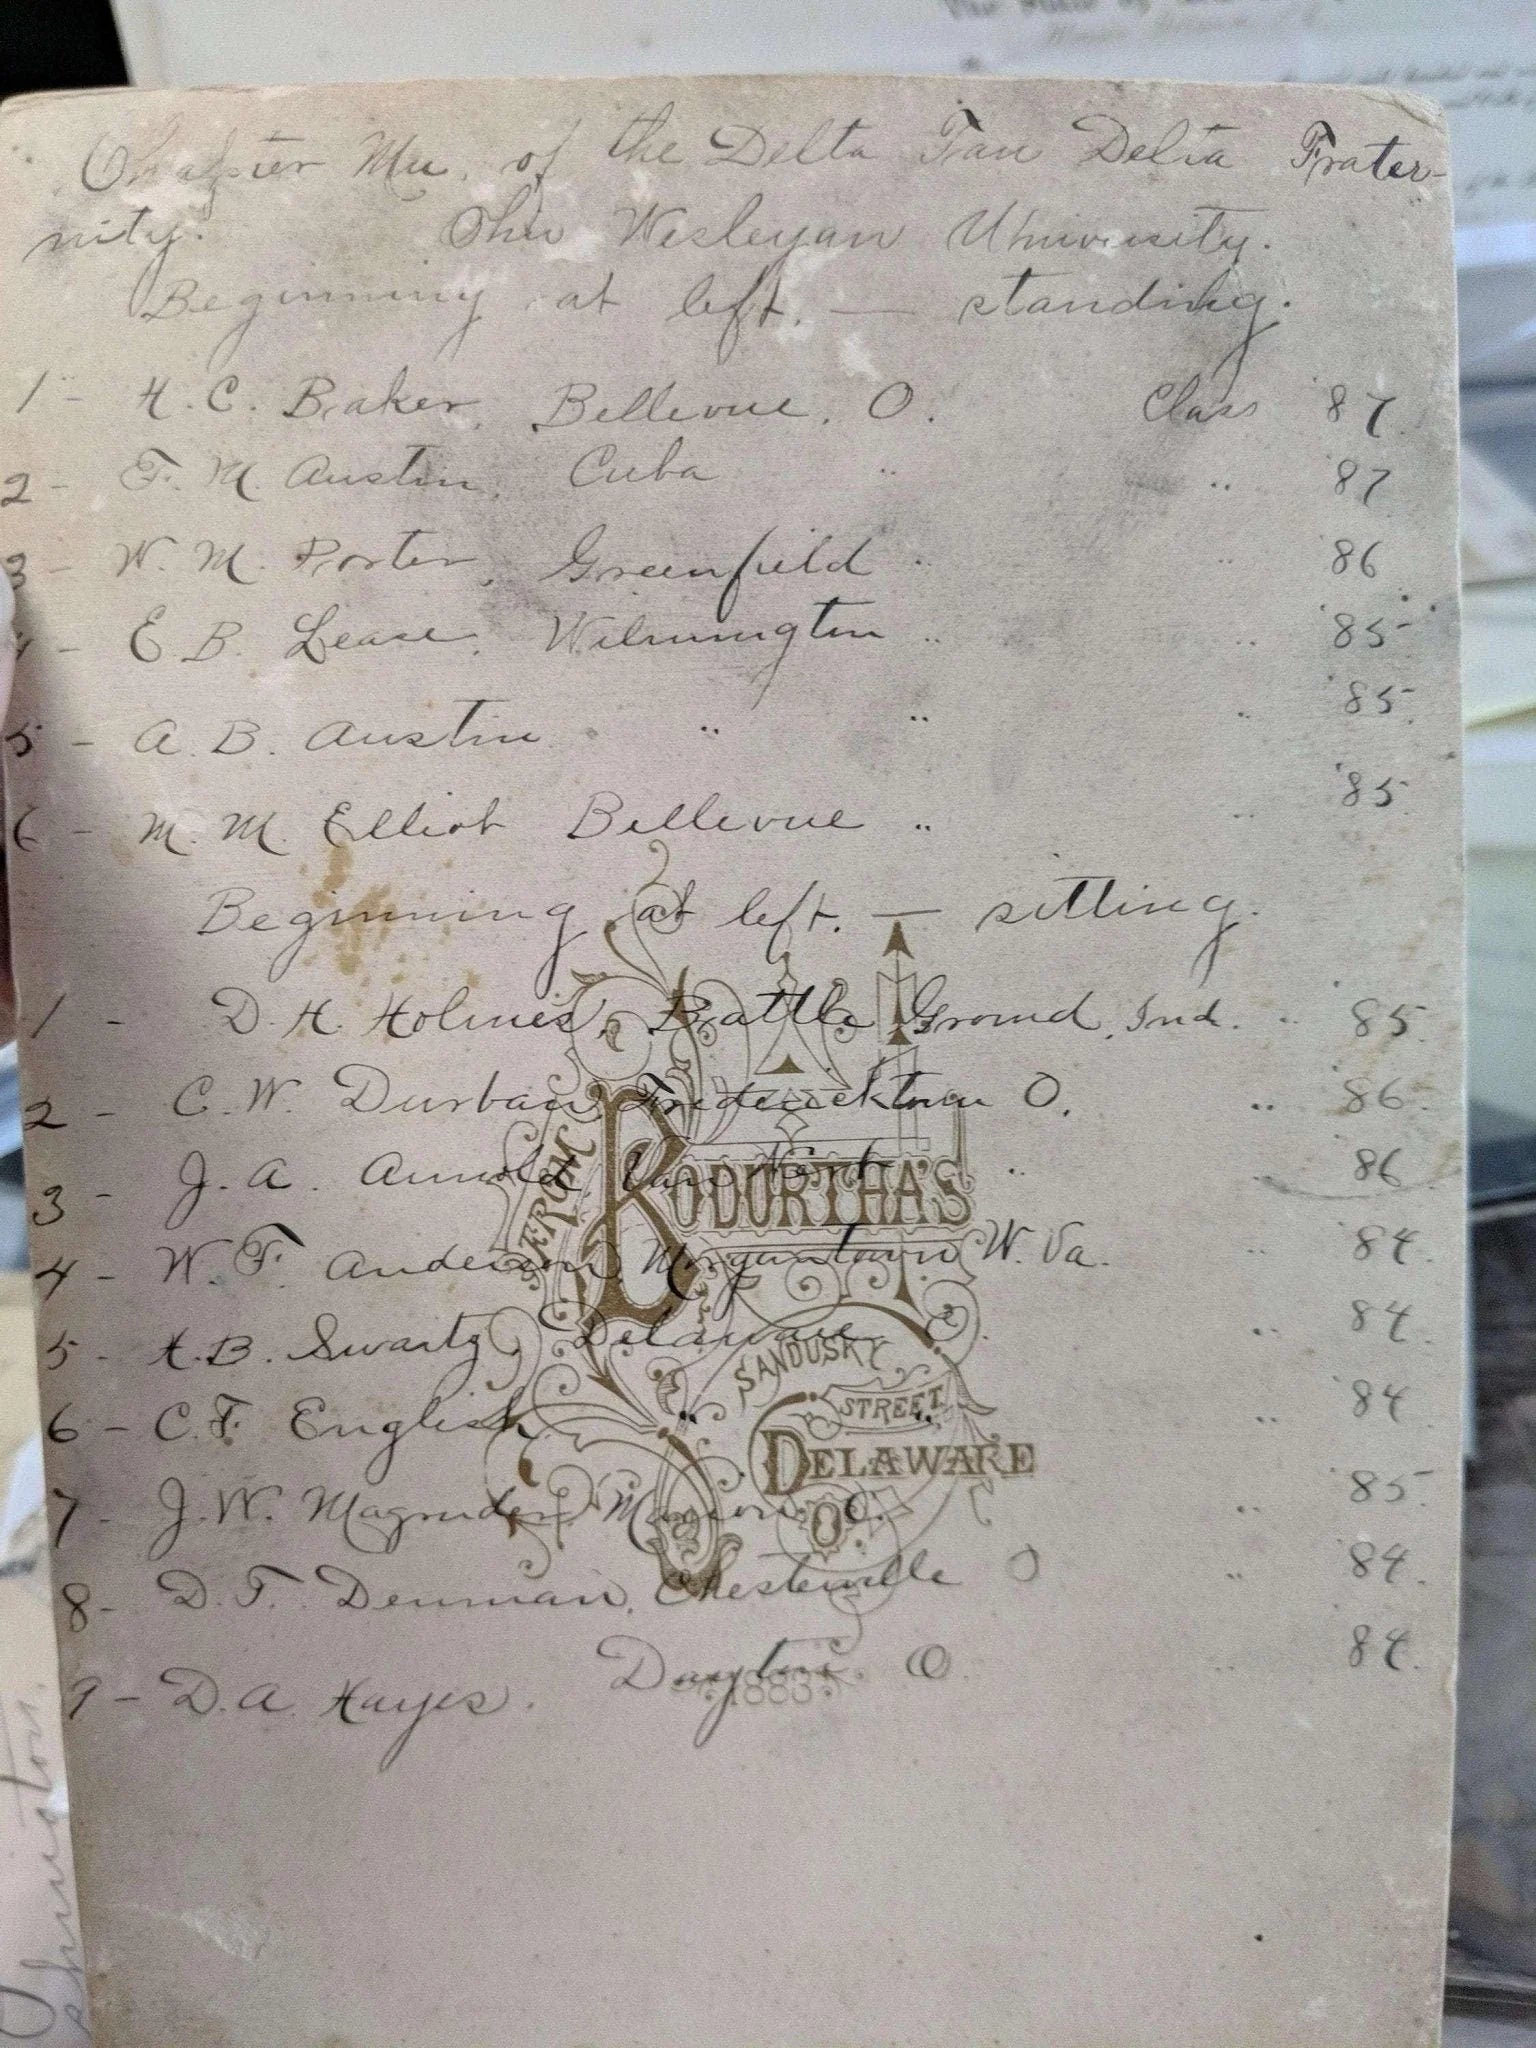 Chapter Mu. of the Delta Tau Delta Frater-
nity. Ohio Wesleyan University.
Beginning at left. — standing.
1 - H. C. Baker, Bellevue, O. Class '87.
2 - F. M. Austin, Cuba " " '87
3 - W. M. Porter, Greenfield " " '86
4 - E B. Lease, Wilmington " " '85
5 - A. B. Austin " " " '85
6 - M. M. Elliot Bellevue " " '85
Beginning at left. — sitting.
1 - D. H. Holmes, Battle Ground, Ind. " 85
2 - C. W. Durban, Fredericktown O. " 86
3 - J. A. Arnold, Van Wert " " 86
4 - W. F. Anderson, Morgantown W. Va. " 84
5 - H. B. Swartz, Delaware O. " 84
6 - C. F. English " " " 84
7 - J. W. Magruder, Marion O. " 85
8 - D. T. Denman, Chesterville O " 84
9 - D. A. Hayes. Dayton O. " 84
FROM
RODURTHA'S
SANDUSKY
STREET
DELAWARE
O.
1883